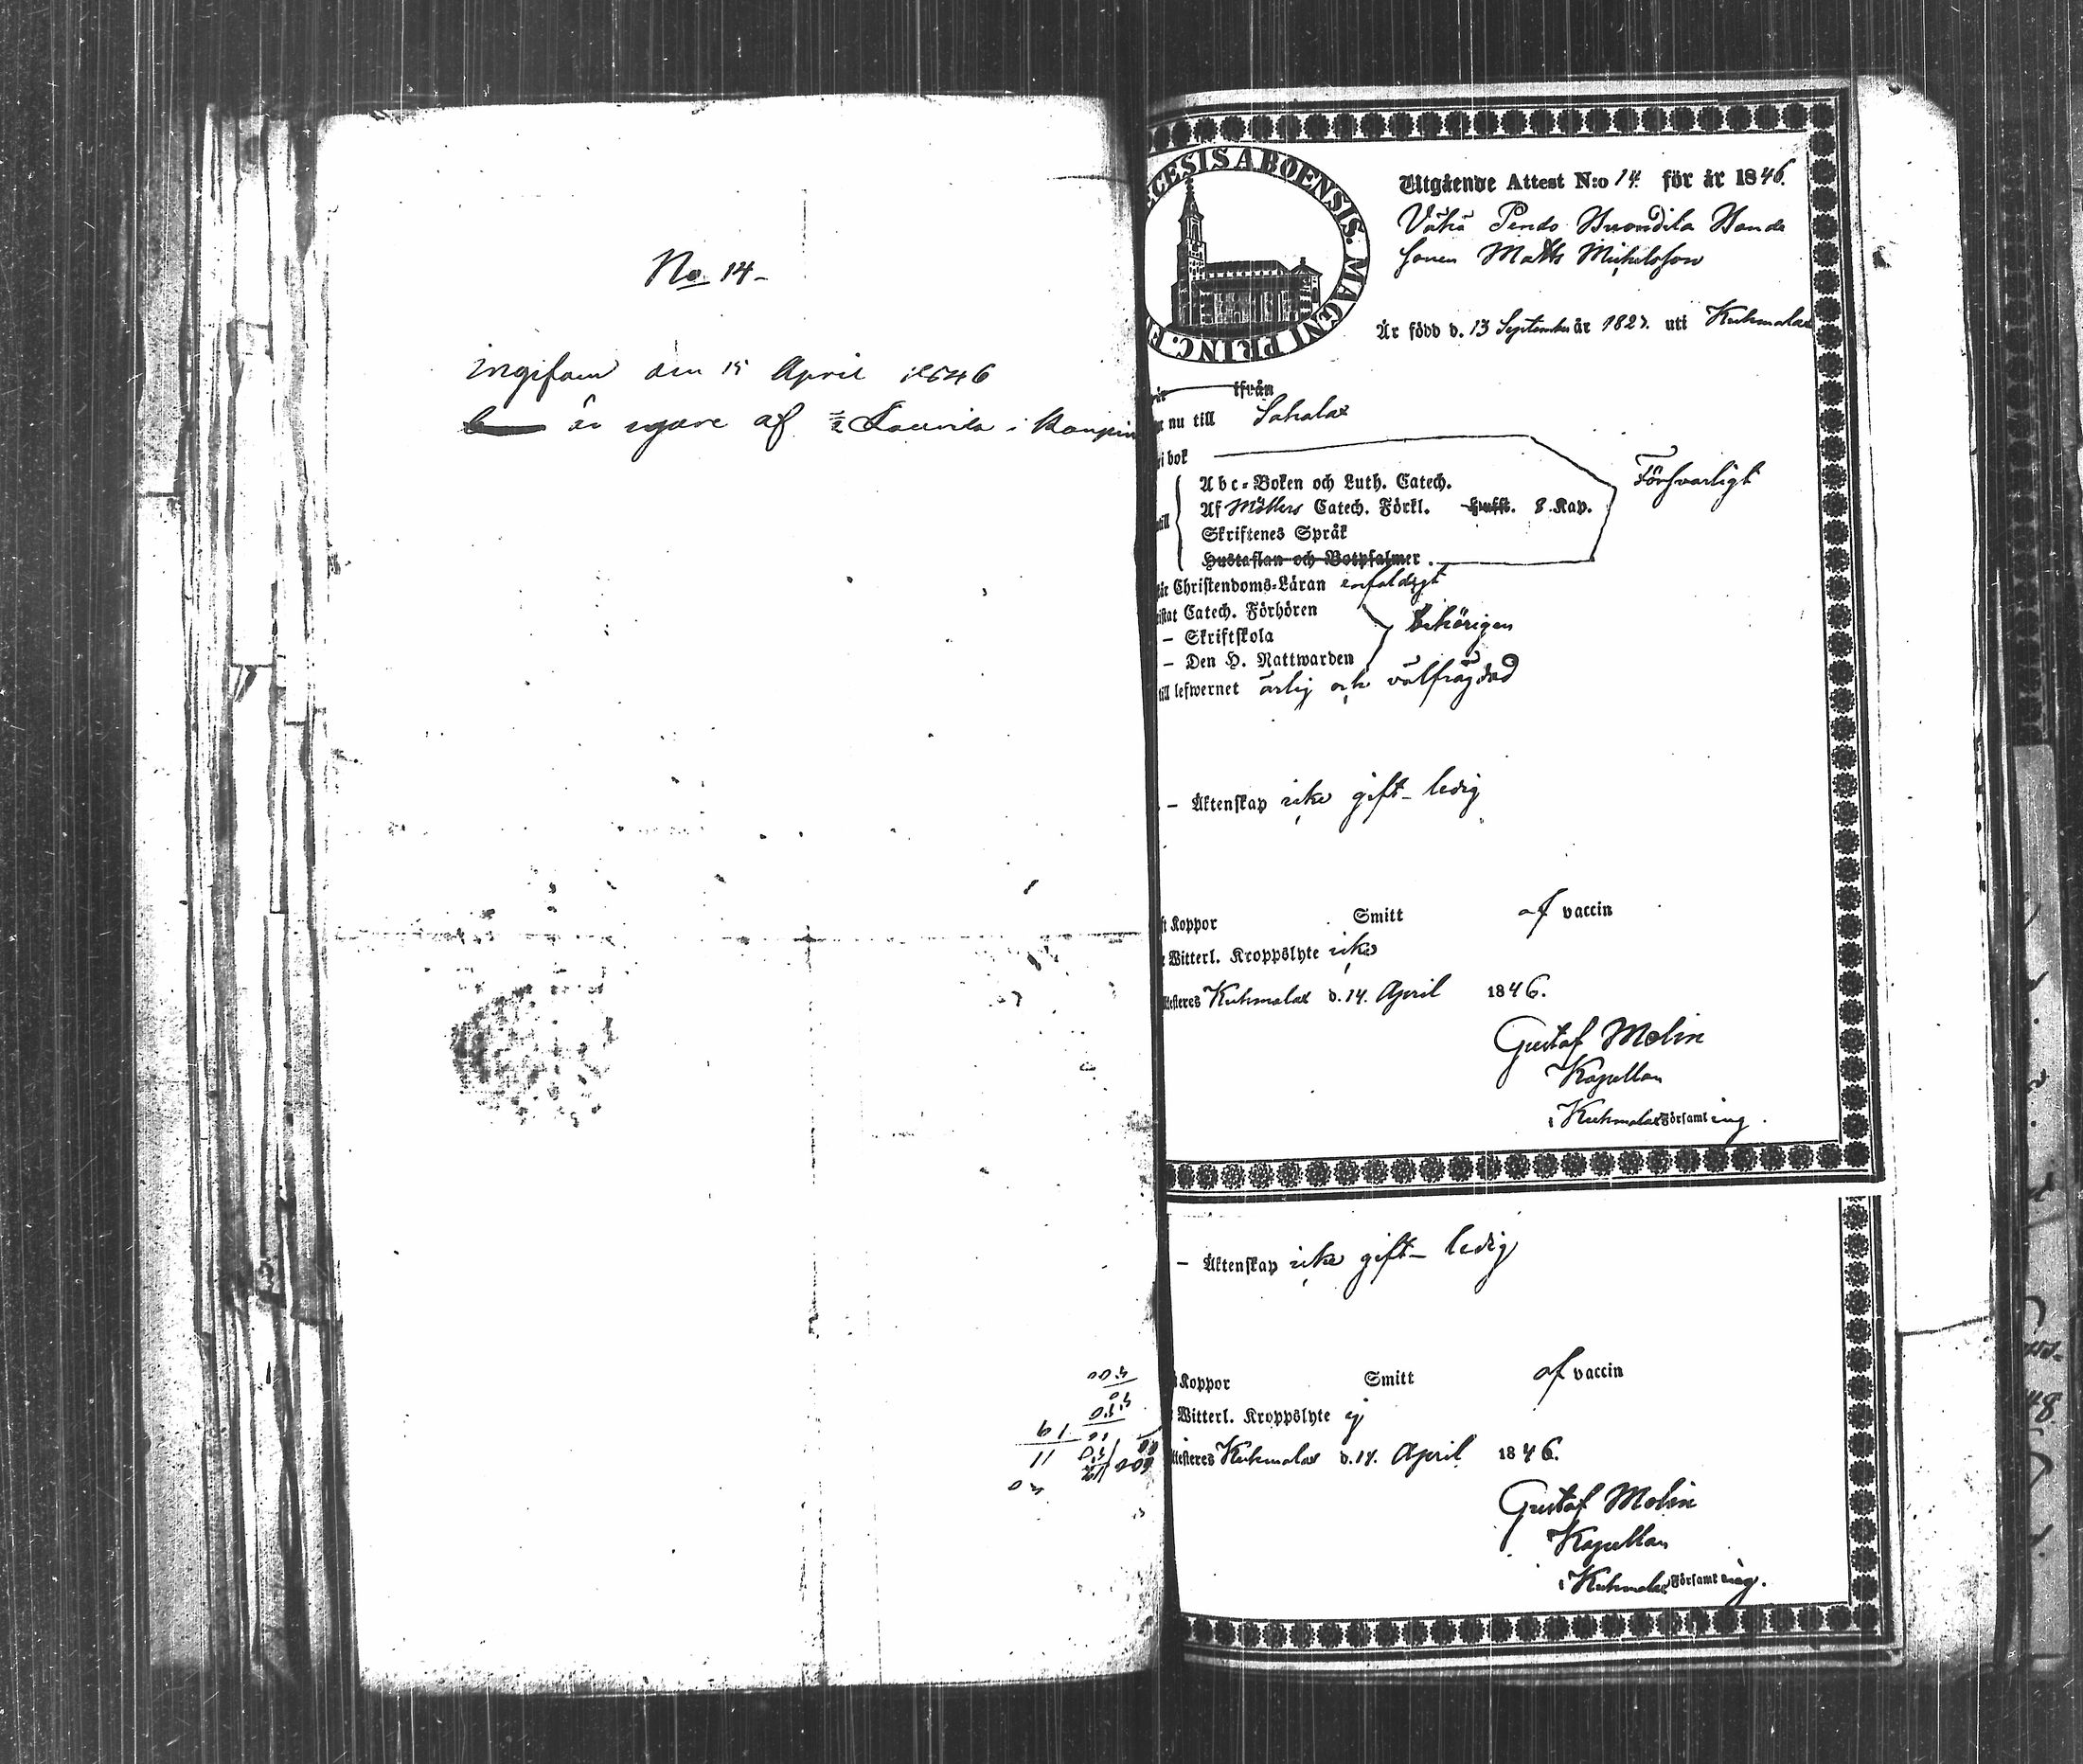 No 14-
ingifven den 15 April 1846
är egare af i
ECESIS ABOENSIS. MAGNI PRINC. F
Utgående Attest N:o 14. för år 1846.
Vähä Pendo Bonde
Sonen Matts Michelsson
Är född d. 13 September år 182 uti Kuhmalax
ifrån
nu till Sahalax
i bok
Abc-Boken och Luth. Catech.
Försvarligt
Af Möllers Catech. Förkl. 8 Kap.
till
Skriftenes Språk
Hustaflan och Botpsalmer.
Christendoms-Läran enfaldigt
Catech. Förhören
behörigen
- Skriftskola
- Den H. Nattwarden
till lefwernet ärlig och välfrägdad
- Äktenskap icke gift - ledig
Koppor Smitt af vaccin
Witterl. Kroppslyte icke
testeres Kuhmalax d. 14. April 1846.
Gustaf Molin
Kapellan
i Kuhmalax Församling.
- Äktenskap icke gift - ledig
Koppor Smitt af vaccin
Witterl. Kroppslyte ej
testeres Kuhmalax d. 14. April 1846.
Gustaf Molin
Kapellan
i Kuhmalax Församling.